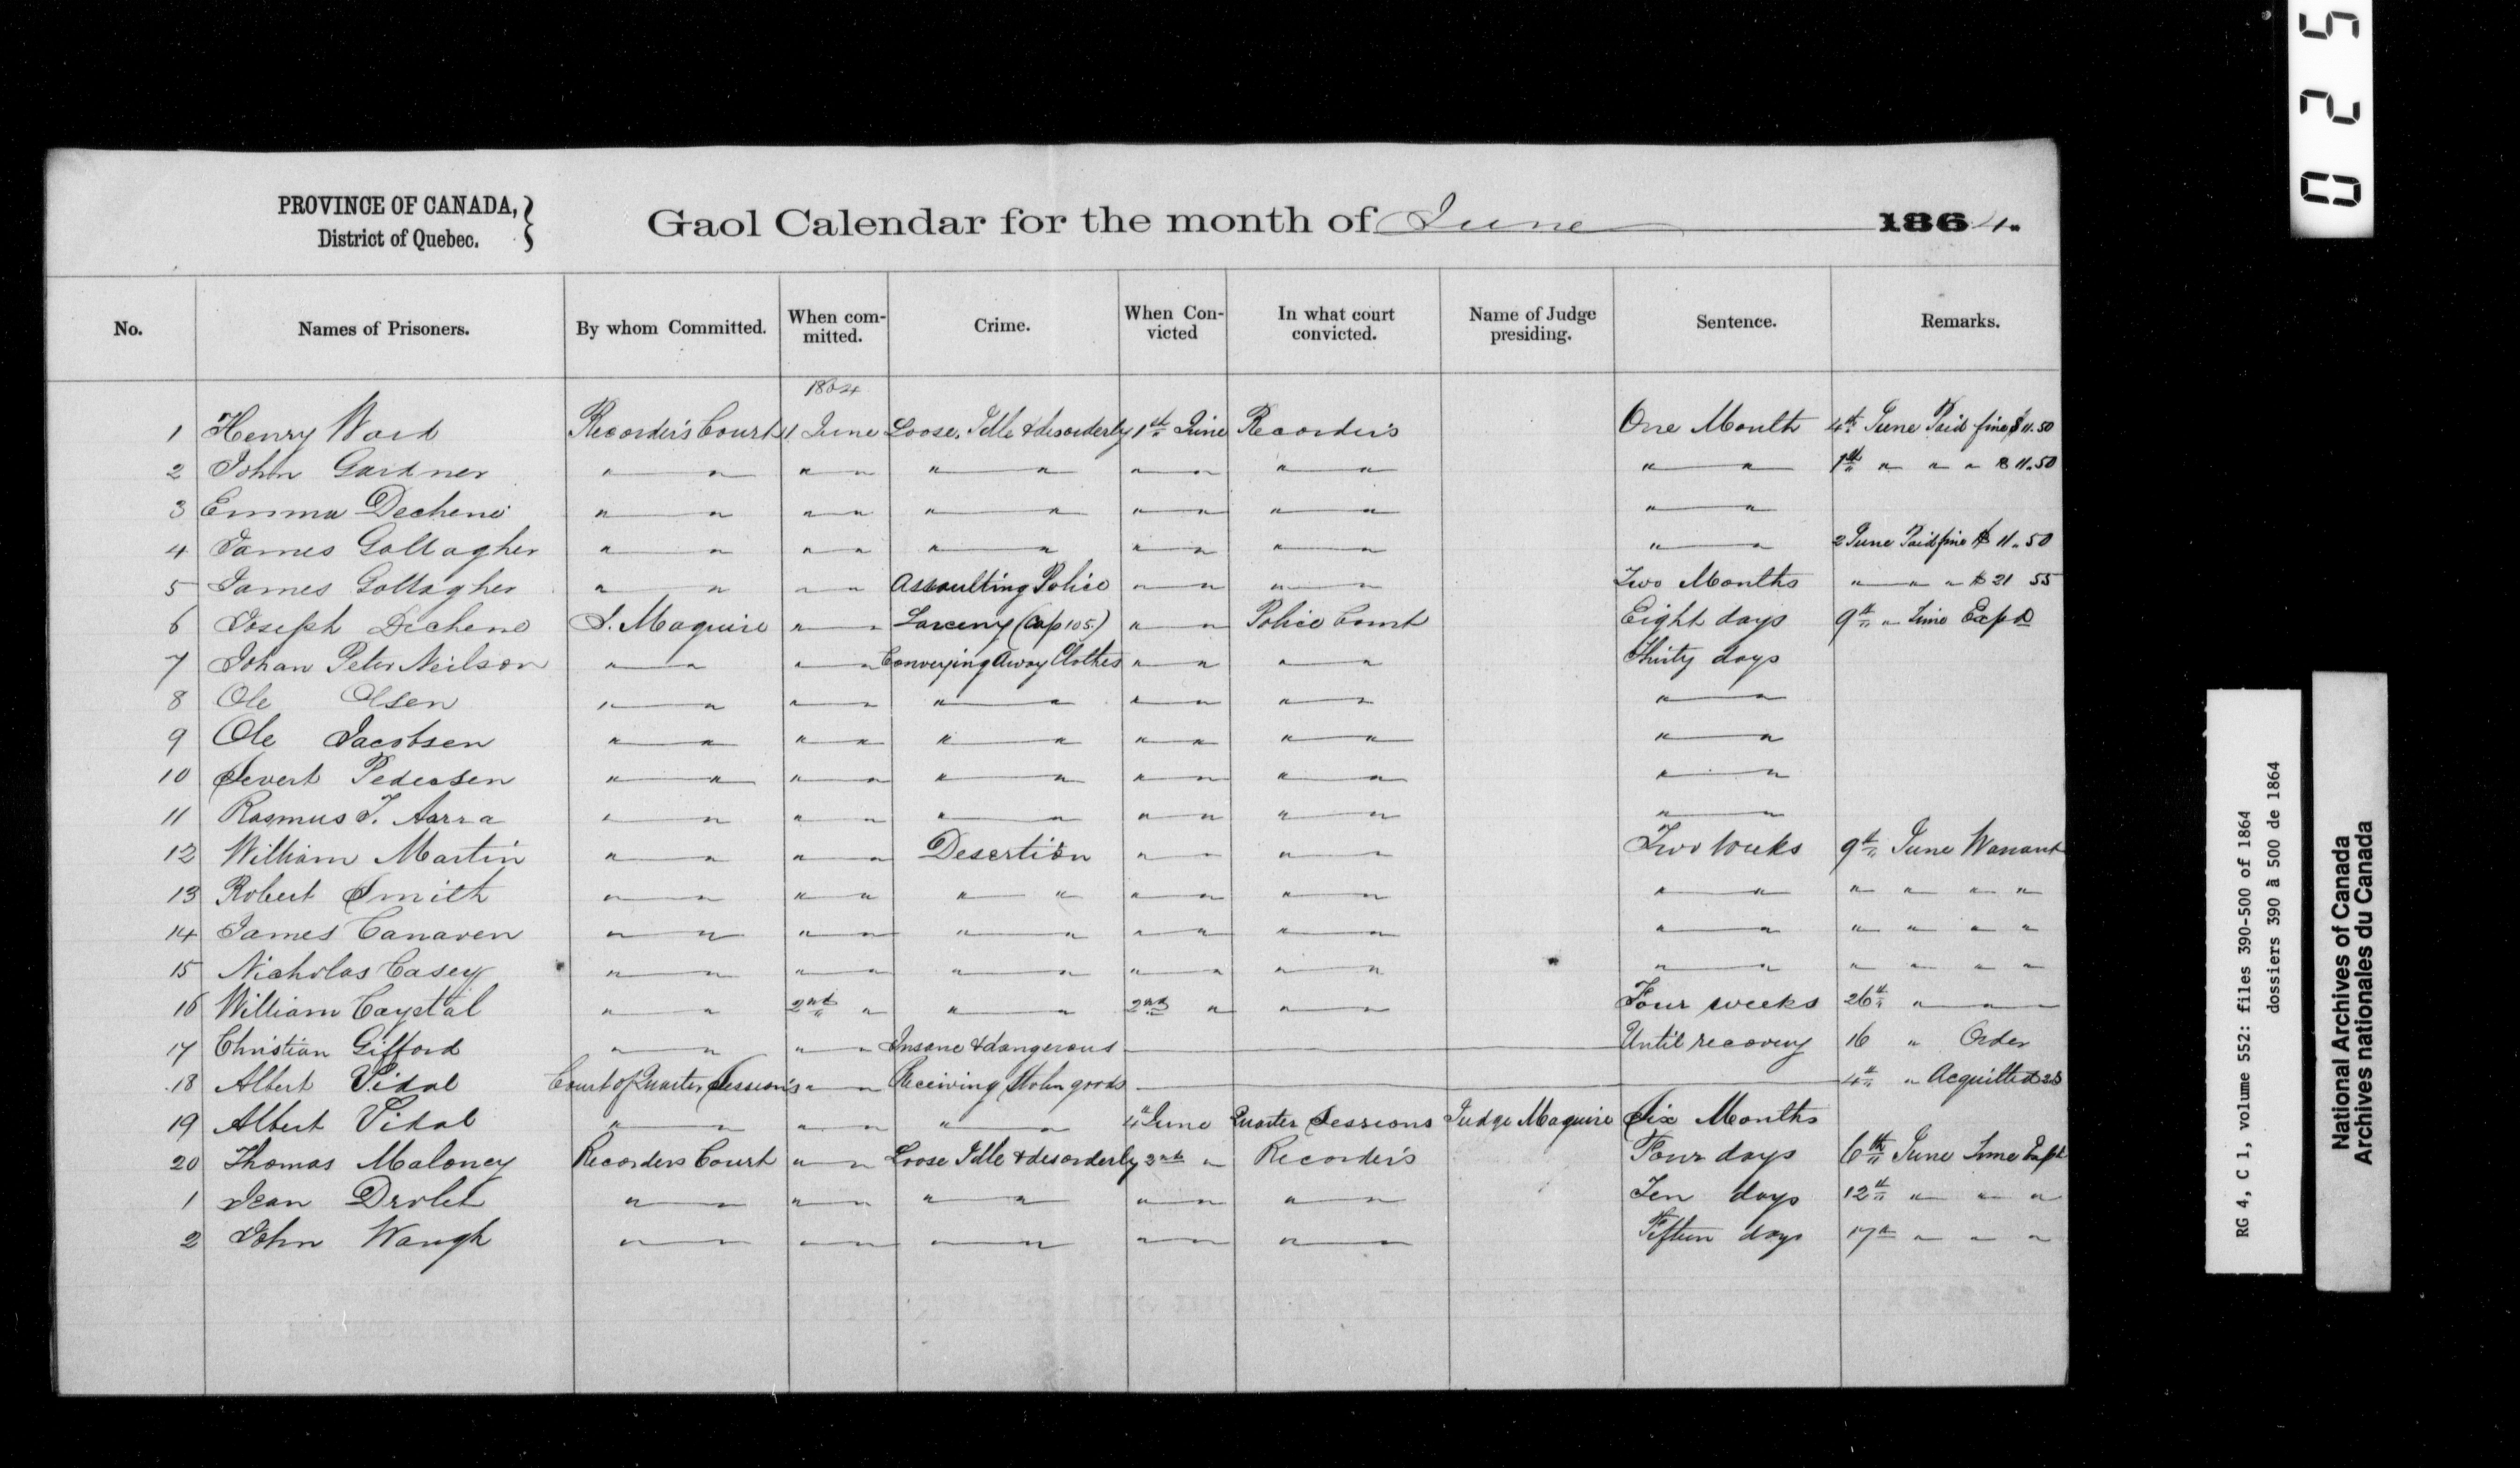 025
PROVINCE OF CANADA,
District of Quebec.
Gaol Calendar for the month of June 1864.
No. Names of Prisoners. By whom Committed. When com-mitted. Crime. When Con-victed In what court convicted. Name of Judge presiding. Sentence. Remarks.
1864
1 Henry Ward Recorder's Court 1 June Loose, Idle & disorderly 1st June Recorder's One Month 4th June Paid fine $11.50
2 John Gardner " " " " " " " " " " " " 1st " " " $ 11.50
3 Emma Dechene " " " " " " " " " " " "
4 James Gallagher " " " " " " " " " " " " 2 June Paid fine $ 11.50
5 James Gallagher " " " " Assaulting Police " " " " Two Months " " " $ 21 55
6 Joseph Dechene J. Maguire " " Larceny (Cap 105) " " Police Court Eight days 9th " Time Expd
7 Johan Peter Neilson " " " " Conveying Away Clothes " " " " Thirty days
8 Ole Olsen " " " " " " " " " " " "
9 Ole Jacobsen " " " " " " " " " " " "
10 Severt Pedersen " " " " " " " " " " " "
11 Rasmus T. Aarra " " " " " " " " " " " "
12 William Martin " " " " Desertion " " " " Two Weeks 9th June Warrant
13 Robert Smith " " " " " " " " " " " " " " " "
14 James Canaven " " " " " " " " " " " " " " " "
15 Nicholas Casey " " " " " " " " " " " " " " " "
16 William Crystal " " 2nd " " " 2nd " " " Four weeks 26th " "
17 Christian Gifford " " " " Insane & dangerous Until recovery 16 " Order
18 Albert Vidal Court of Quarter Sessions " " Receiving Stolen goods 4th " Acquitted
19 Albert Vidal " " " " " " 4 June Quarter Sessions Judge Maguire Six Months
20 Thomas Maloney Recorders Court " " Loose Idle & disorderly 2nd " Recorder's Four days 6th June Time Expd
1 Jean Drolet " " " " " " " " " " Ten days 12th " " "
2 John Waugh " " " " " " " " " " Fifteen days 17th " " "
RG 4, C 1, volume 552: files 390-500 of 1864
dossiers 390 à 500 de 1864
National Archives of Canada
Archives nationales du Canada